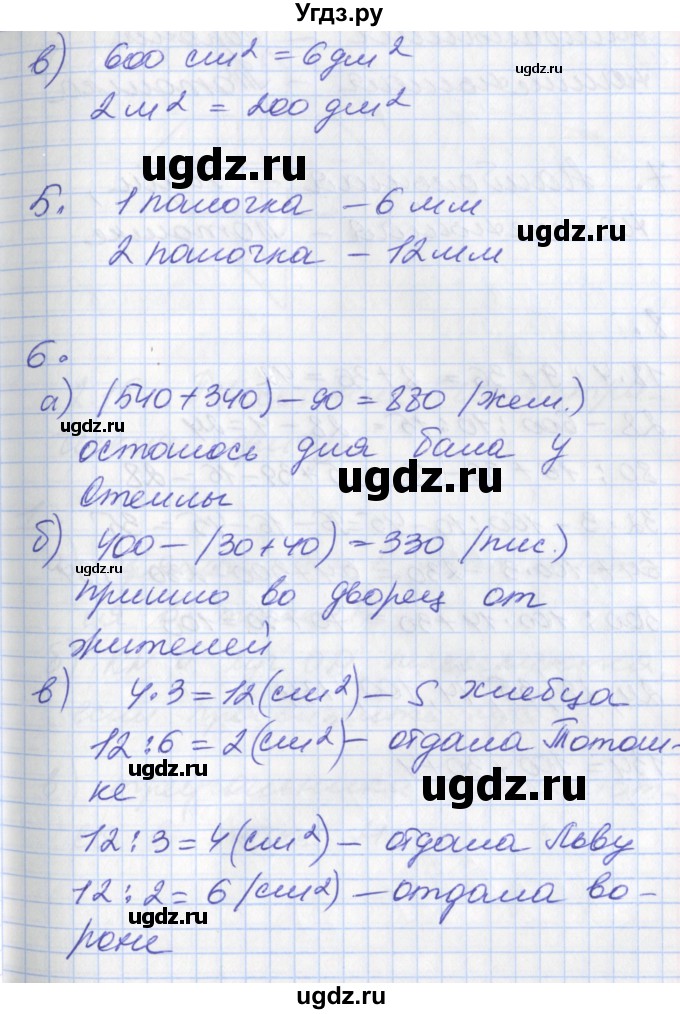 Угдз.ру
в) 600 см² = 6 дм²
ugdz.ru
2 м² = 200 дм²
ugdz.ru
5. 1 палочка – 6 мм
ugdz.ru
2 палочка – 12 мм
6.
а) (540 + 340) – 90 = 880 (жем.)
ugdz.ru
осталось для бала у
ugdz.ru
Стеллы
ugdz.ru
б) 400 – (30 + 40) = 330 (пис.)
пришло во дворец от
ugdz.ru
жителей
в) 4 · 3 = 12 (см²) – S хлебца
12 : 6 = 2 (см²) – отдала Тотош-
ugdz.ru
ке
ugdz.ru
12 : 3 = 4 (см²) – отдала Льву
12 : 2 = 6 (см²) – отдала во-
ugdz.ru
роне
ugdz.ru
ugdz.ru